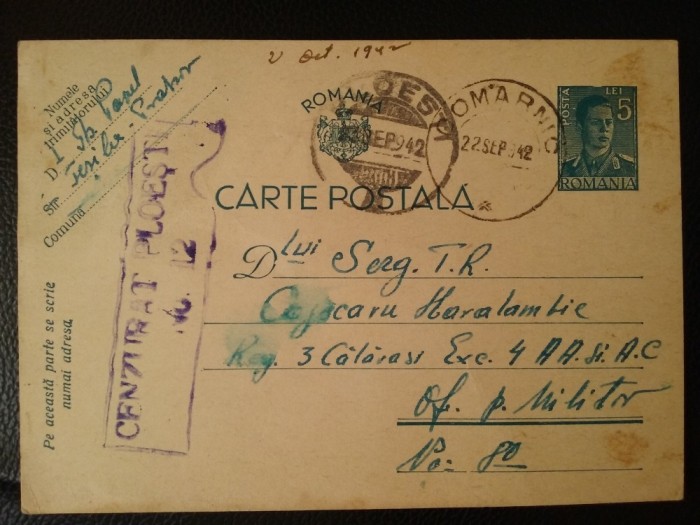 2 Oct. 1942
Numele
și adresa
trimițătorului
D.
Str.
Comuna
ROMANIA
22 SEP 942
COMARNIC
22 SEP 942
POSTA
LEI
5
ROMANIA
CARTE POSTALA
CENZURAT PLOEȘTI
No. 12
Pe această parte se scrie
numai adresa.
Dlui Serg. T.R.
Cojocaru Haralambie
Reg. 3 Călărași Exc. 4 A A. și A.C
Of. p. Militar
No. 80